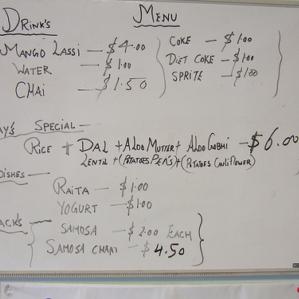 MENU
DRINK'S
MANGO LASSI — $4.00
WATER — $1.00
CHAI — $1.50
COKE — $1.00
DIET COKE — $1.00
SPRITE — $1.00
AY'S SPECIAL —
RICE + DAL + ALOO MUTTER + ALOO GOBHI — $6.00
LENTIL + (POTATOES PEA'S) + (POTATOES CAULIFLOWER)
DISHES —
RAITA — $1.00
YOGURT — $1.00
ACK'S —
SAMOSA — $2.00 EACH
SAMOSA CHAAT — $4.50